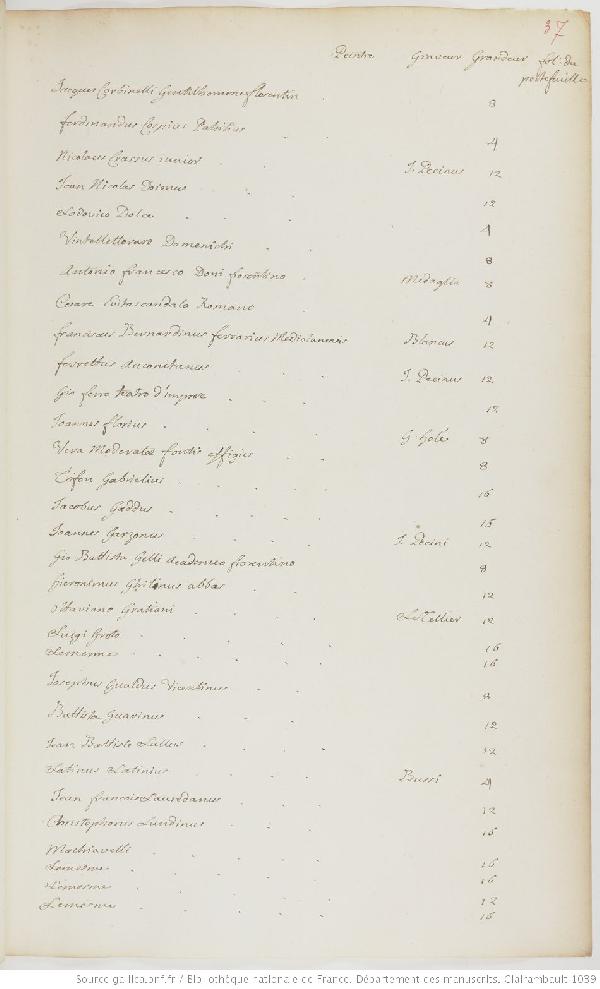 37
Peintre Graveur Grandeur fol: du
portefeuille
Jacques Corbinelli Gentilhomme florentin 8
ferdinandus Cospius Patritius 4
Nicolaus Crassus iunior J. Pecinus 12
Jean Nicolas Doimus 12
Lodovico Dolce 4
Domenichi 8
Antonio francesco Doni fiorentino Medaglia 8
Cesare Romano 4
franciscus Bernardinus ferrarius Mediolanensis Blancus 12
ferrettus Anconitanus J. Pecinus 12
Gio ferro teatro d'imprese 12
Joannes florius G Hole 8
Vera Moderatae fontis effigies 8
Trifon Gabrielius 16
Jacobus Gaddus 16
Joannes Garzonus J. Pecini 12
Gio Battista Gelli Academico florentino 8
hieronimus Ghilinus abbas 12
Ottaviano Gratiani LeTellier 12
Luigi Groto 16
Lemesme 16
Josephus Gualdus Vicentinus 8
Battista Guarinus 12
Jean Battiste Lullus 12
Latinus Latinius Bussi 4
Jean francois Lauredanus 12
Christophorus Landinus 16
Machiavelli 16
Lemesme 16
Lemesme 12
Lemesme 16
Source gallica.bnf.fr / Bibliothèque nationale de France. Département des manuscrits. Clairambault 1039